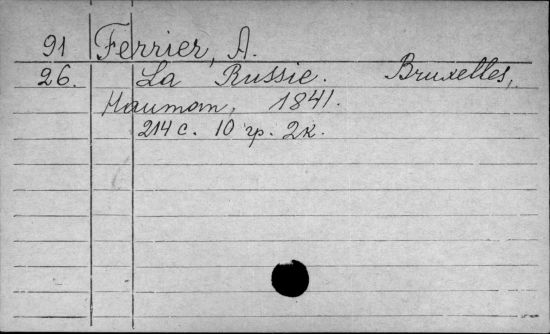 91 Ferrier, A.
26. La Russie. Bruxelles,
Hauman, 1841.
214 с. 10 гр. 2к.